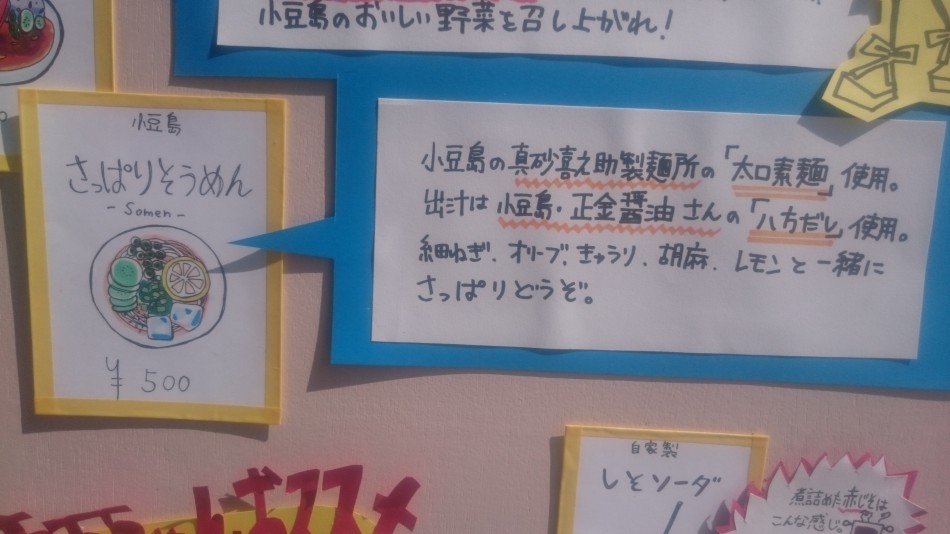 小豆島のおいしい野菜を召し上がれ!
小豆島
さっぱりそうめん
- Somen -
¥500
小豆島の真砂喜之助製麺所の「太口素麺」使用。
出汁は小豆島・正金醤油さんの「八方だし」使用。
細ねぎ、オリーブ、きゅうり、胡麻、レモンと一緒に
さっぱりどうぞ。
オススメ
自家製
しそソーダ
煮詰めた赤じそは
こんな感じ。